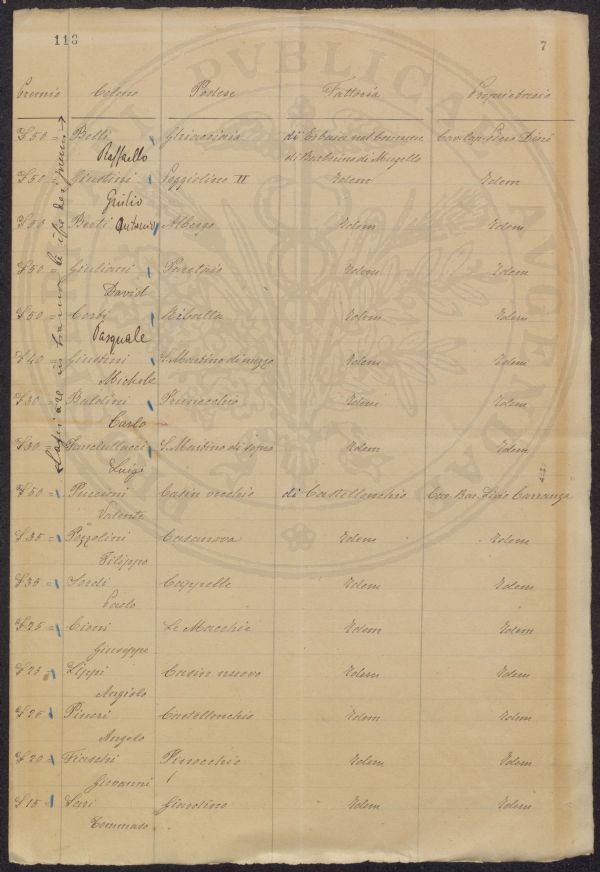 113 7
Premio Colono Podere Fattoria Proprietario
£50 = Betti Ghiacciaia di Erbaia nel Comune Cav. Cap. Piero Dini
Raffaello di Barberino di Mugello
£50 = Giustini Poggiolino II Idem Idem
Giulio
£50 Berti Antonio Albergo Idem Idem
£50 = Giuliani Paretaio Idem Idem
David
£50 = Cerbi Ribatta Idem Idem
Pasquale
£40 = Giustini S. Martino di mezzo Idem Idem
Michele
£30 = Baldini Prunecchio Idem Idem
Carlo
£30 = Fanciullacci S. Martino di sopra Idem Idem
Luigi
Lasciare in bianco le cifre dei premi
£50 = Puccini Casin vecchio di Castellonchio Cav. Bar. Livio Carranza
Valente
£35 = Pozzolini Casanova Idem Idem
Filippo
£35 = Sordi Cappelle Idem Idem
Paolo
£25 = Cioni Le Macchie Idem Idem
Giuseppe
£25 = Lippi Casin nuovo Idem Idem
Angiolo
£25 Pineri Castellonchio Idem Idem
Angelo
£20 = Fiaschi Pinocchio Idem Idem
Giovanni
£15 = Sari Giardino Idem Idem
Tommaso